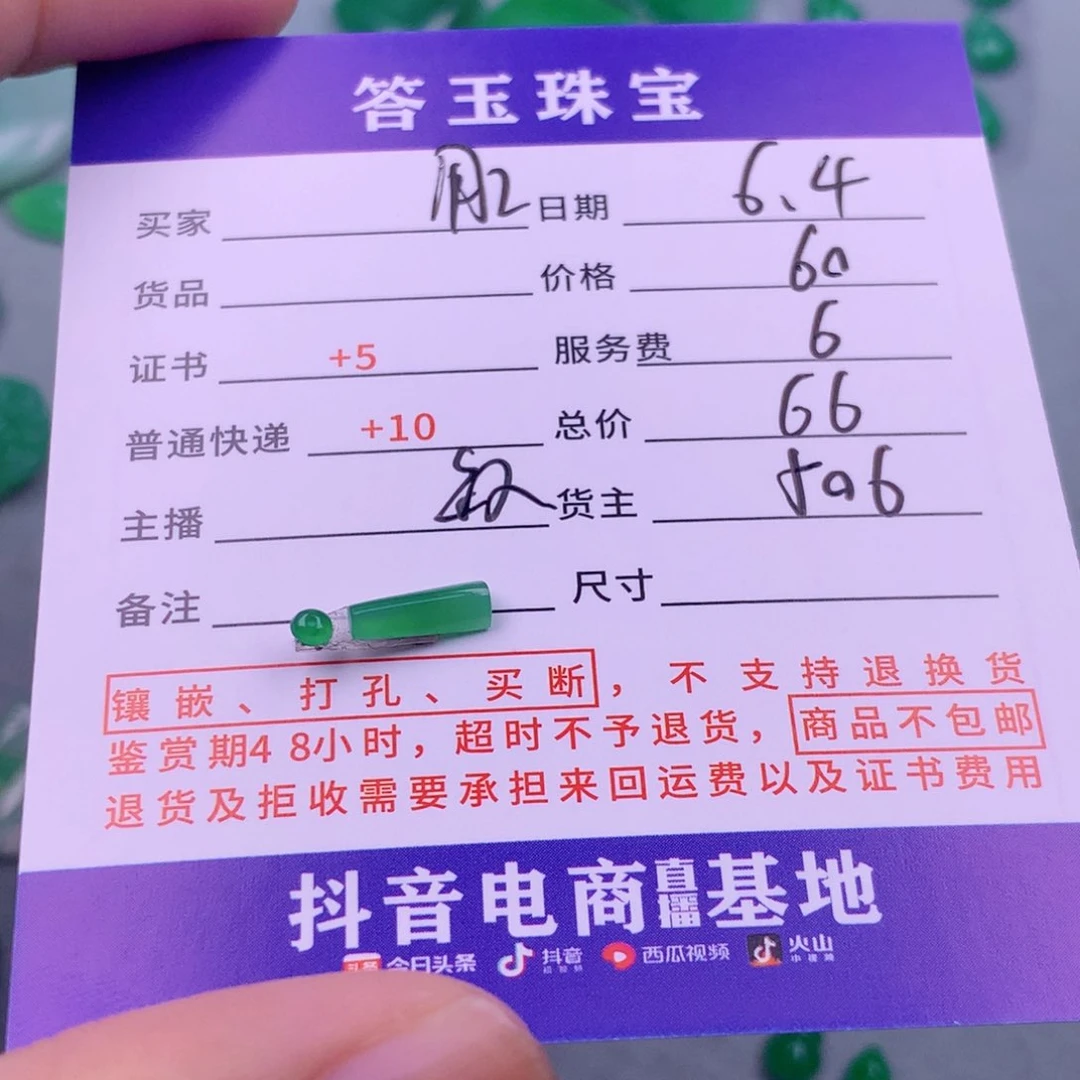 答玉珠宝
买家 日期 6.4
货品 价格 60
证书 +5 服务费 6
普通快递 +10 总价 66
主播 货主
备注 尺寸
镶嵌、打孔、买断，不支持退换货
鉴赏期48小时，超时不予退货，商品不包邮
退货及拒收需要承担来回运费以及证书费用
抖音电商直播基地
头条 今日头条 抖音 西瓜视频 火山